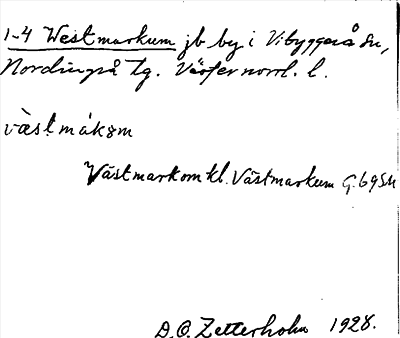 1-4 Westmarkum jb by i Vibyggerå sn,
Nordingrå tg. Västernorrl. l.
væ̀stmákəm
Västmarkom kl. Västmarkum G. 69 SM
D.O. Zetterholm 1928.